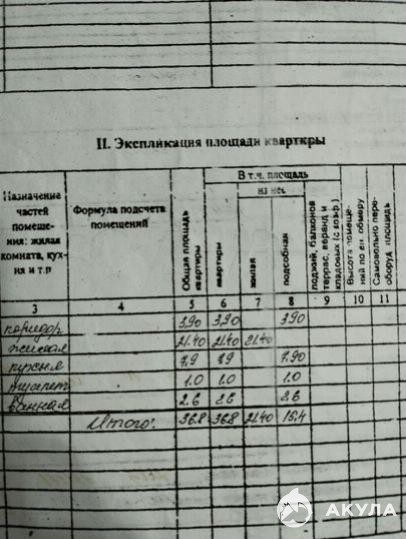 II. Экспликация площади квартиры
Назначение частей помещения: жилая комната, кухня и т.п
Формула подсчета помещений
Общая площадь квартиры
В т.ч. площадь
квартиры
из нее
жилая
подсобная
лоджий, балконов террас, веранд и кладовых (с коэф.)
Высота помещений по вн. обмеру
Самовольно переоборуд. площадь
3 4 5 6 7 8 9 10 11
коридор 3.90 3.90 3.90
жилая 21.40 21.40 21.40
кухня 7.9 7.9 7.90
туалет 1.0 1.0 1.0
ванная 2.6 2.6 2.6
Итого: 36.8 36.8 21.40 15.4
АКУЛА